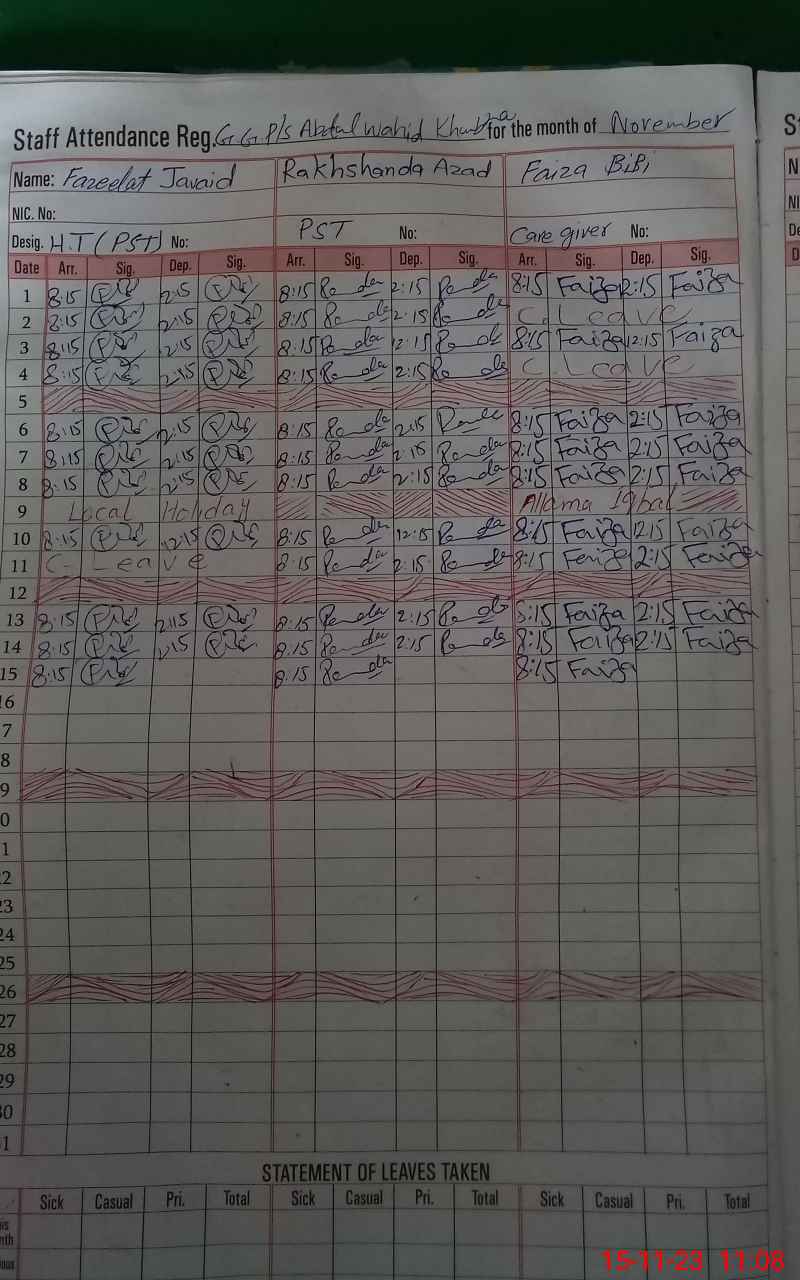 Staff Attendance Reg. G G P/S Abdul Wahid Khubra for the month of November
Name: Fazeelat Javaid Rakhshanda Azad Faiza BiBi
NIC. No:
Desig. H.T (PST) No: PST No: Care giver No:
Date Arr. Sig. Dep. Sig. Arr. Sig. Dep. Sig. Arr. Sig. Dep. Sig.
1 8:15 2:15 8:15 2:15 8:15 Faiza 2:15 Faiza
2 8:15 2:15 8:15 2:15 C. Leave
3 8:15 2:15 8:15 12:15 8:15 Faiza 12:15 Faiza
4 8:15 2:15 8:15 2:15 C. Leave
5
6 8:15 2:15 8:15 2:15 8:15 Faiza 2:15 Faiza
7 8:15 2:15 8:15 2:15 8:15 Faiza 2:15 Faiza
8 8:15 2:15 8:15 2:15 8:15 Faiza 2:15 Faiza
9 Local Holiday Allama Iqbal
10 8:15 12:15 8:15 12:15 8:15 Faiza 12:15 Faiza
11 C. Leave 8:15 2:15 8:15 Faiza 2:15 Faiza
12
13 8:15 2:15 8:15 2:15 8:15 Faiza 2:15 Faiza
14 8:15 2:15 8:15 2:15 8:15 Faiza 2:15 Faiza
15 8:15 8:15 8:15 Faiza
16
7
8
9
0
1
22
23
24
25
26
27
28
29
30
1
STATEMENT OF LEAVES TAKEN
Sick Casual Pri. Total Sick Casual Pri. Total Sick Casual Pri. Total
15-11-23 11:08